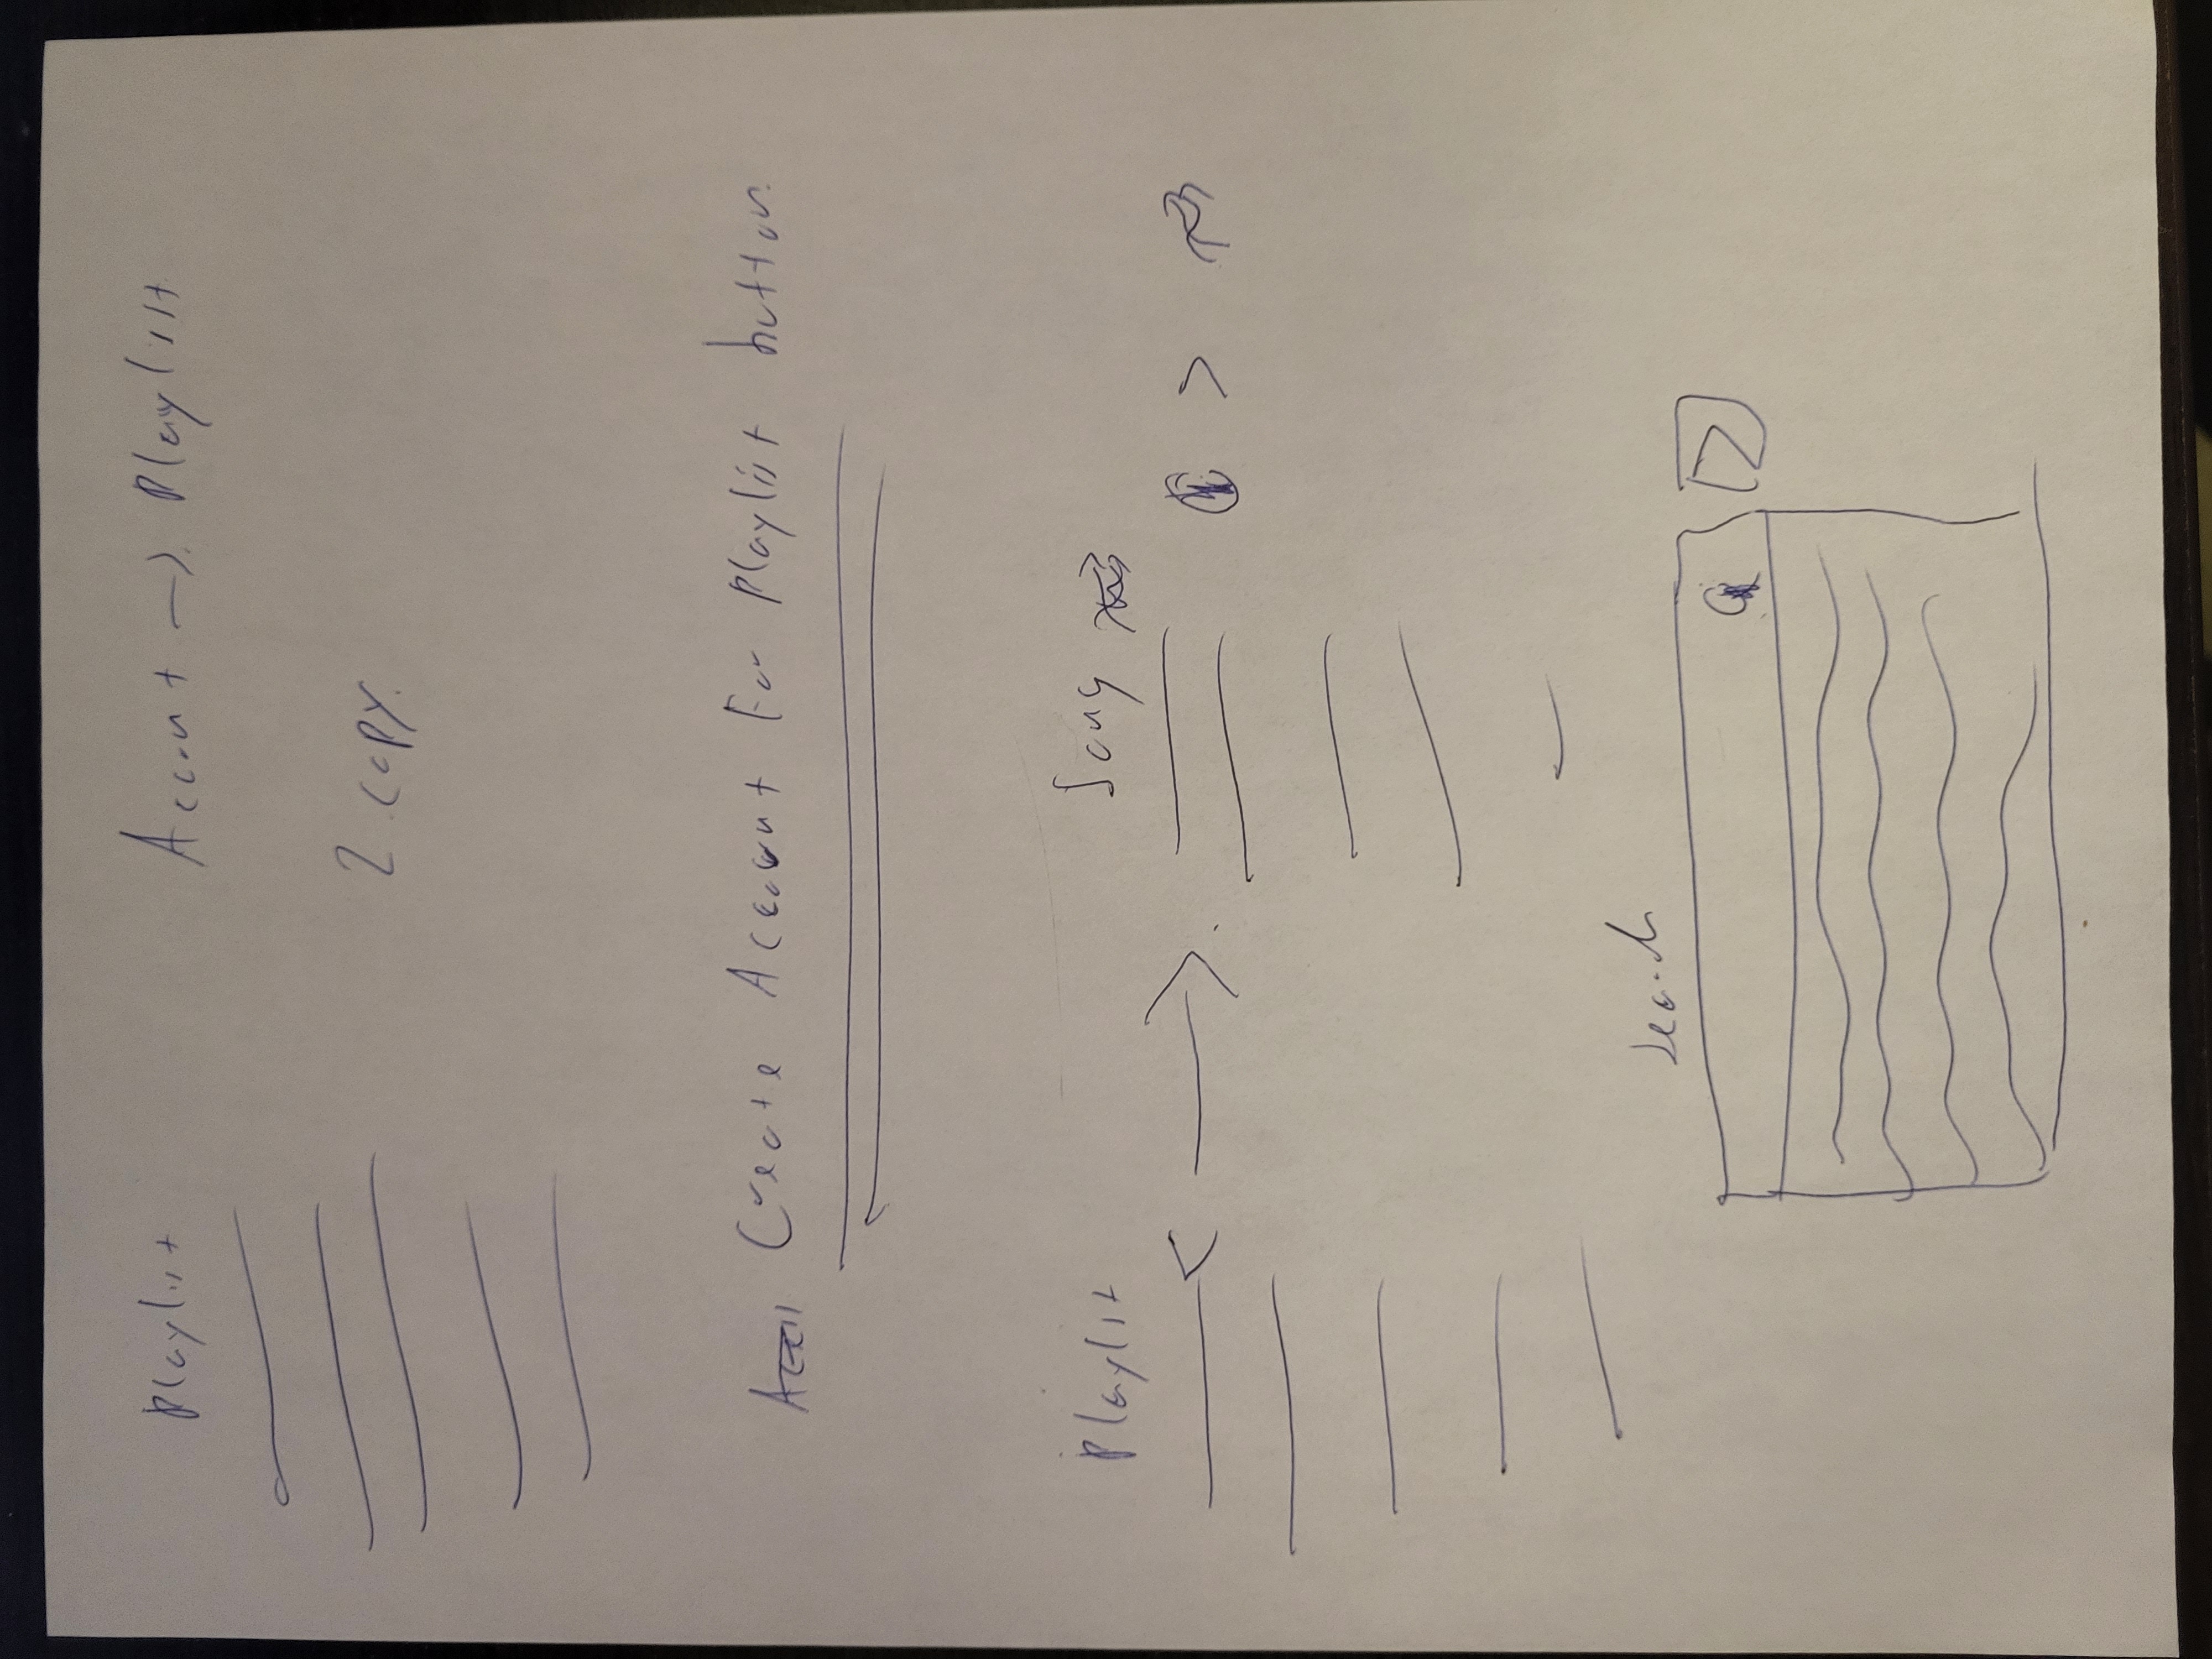 Playlist
Account → Playlist
2 copy.
Create Account For Playlist button.
Playlist
Song
>
Search